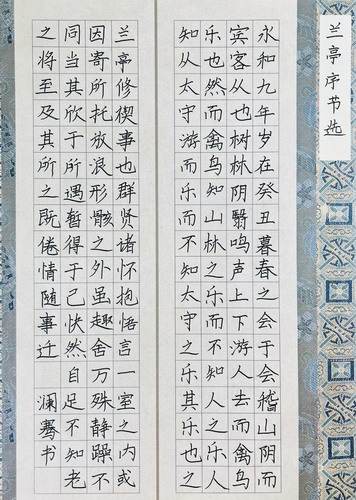 兰亭序书选
永和九年岁在癸丑暮春之会于会稽山阴而
宾客从也树林阴翳鸣声上下游人去而禽鸟
乐也然而禽鸟知山林之乐而不知人之乐人
知从太守游而乐而不知太守之乐其乐也之
兰亭修禊事也群贤诸怀抱悟言一室之内或
因寄所托放浪形骸之外虽趣舍万殊静躁不
同当其欣于所遇暂得于己快然自足不知老
之将至及其所之既倦情随事迁 澜骞书